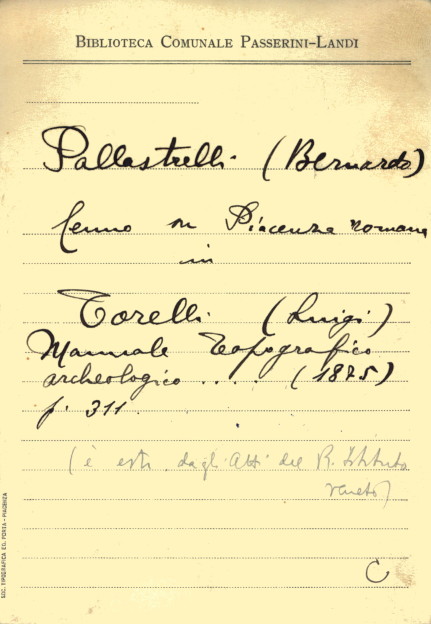 BIBLIOTECA COMUNALE PASSERINI-LANDI
Pallastrelli (Bernardo)
Cenno su Piacenza romana
in
Torelli (Luigi)
Manuale topografico
archeologico .... (1875)
p. 311.
(è estr. dagli Atti del R. Istituto
Veneto)
C
SOC. TIPOGRAFICA ED. PORTA - PIACENZA